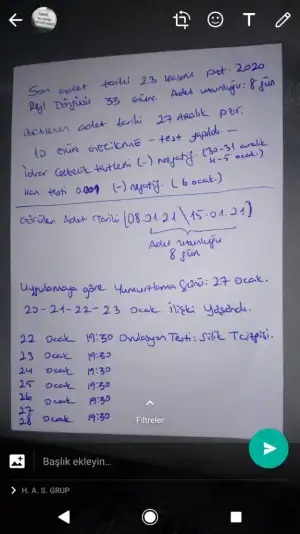 Son adet tarihi 23 Kasım pzt. 2020
Regl Döngüsü 35 Gün. Adet uzunluğu: 8 gün
Beklenen adet tarihi 27 Aralık pzr.
10 Gün GECİKME - test yapıldı -
İdrar Gebelik testleri (-) negatif. (30-31 aralık
4-5 ocak.)
Kan testi (-) negatif. (6 ocak.)
Görülen Adet Tarihi [08.01.21 \ 15.01.21]
Adet uzunluğu
8 gün
Uygulamaya göre Yumurtlama Günü: 27 Ocak.
20-21-22-23 Ocak ilişki Yaşandı.
22 Ocak 19:30 Ovulasyon Testi: Silik Tek Çizgi.
23 Ocak 19:30
24 Ocak 19:30
25 Ocak 19:30
26 Ocak 19:30
27
28 Ocak 19:30
Filtreler
Başlık ekleyin...
H. A. S. GRUP
T